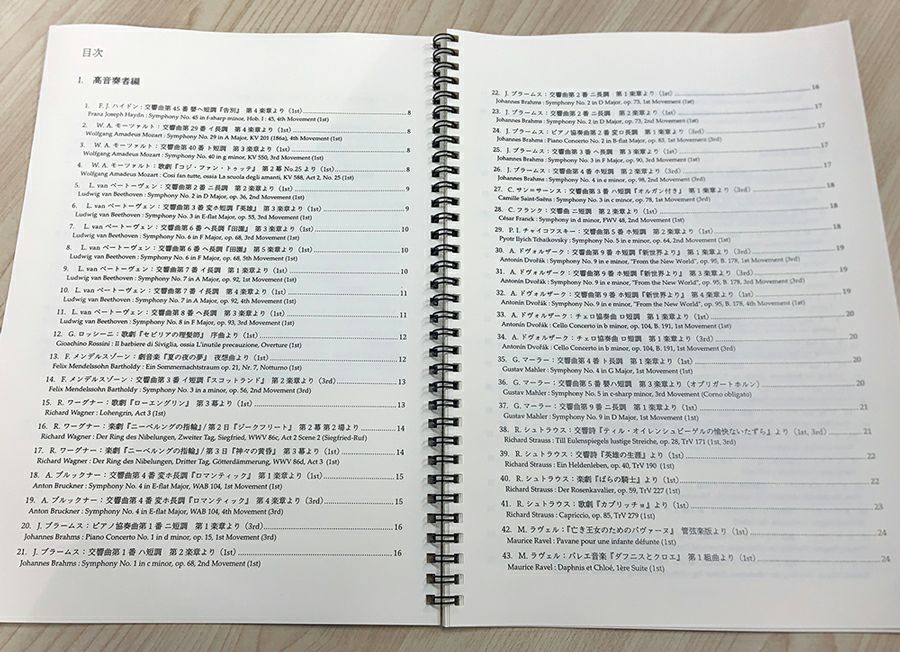 目次
1. 高音奏者編
1. F. J. ハイドン：交響曲第 45 番 嬰ヘ短調『告別』 第 4 楽章より（1st） 8
Franz Joseph Haydn : Symphony No. 45 in f-sharp minor, Hob. I : 45, 4th Movement (1st)
2. W. A. モーツァルト：交響曲第 29 番 イ長調 第 4 楽章より（1st） 8
Wolfgang Amadeus Mozart : Symphony No. 29 in A Major, KV 201 (186a), 4th Movement (1st)
3. W. A. モーツァルト：交響曲第 40 番 ト短調 第 3 楽章より（1st） 8
Wolfgang Amadeus Mozart : Symphony No. 40 in g minor, KV 550, 3rd Movement (1st)
4. W. A. モーツァルト：歌劇『コジ・ファン・トゥッテ』 第 2 幕 No.25 より（1st） 8
Wolfgang Amadeus Mozart : Così fan tutte, ossia La scuola degli amanti, KV 588, Act 2, No. 25 (1st)
5. L. van ベートーヴェン：交響曲第 2 番 ニ長調 第 2 楽章より（1st） 9
Ludwig van Beethoven : Symphony No. 2 in D Major, op. 36, 2nd Movement (1st)
6. L. van ベートーヴェン：交響曲第 3 番 変ホ長調『英雄』 第 3 楽章より（1st） 9
Ludwig van Beethoven : Symphony No. 3 in E-flat Major, op. 55, 3rd Movement (1st)
7. L. van ベートーヴェン：交響曲第 6 番 ヘ長調『田園』 第 3 楽章より（1st） 10
Ludwig van Beethoven : Symphony No. 6 in F Major, op. 68, 3rd Movement (1st)
8. L. van ベートーヴェン：交響曲第 6 番 ヘ長調『田園』 第 5 楽章より（1st） 10
Ludwig van Beethoven : Symphony No. 6 in F Major, op. 68, 5th Movement (1st)
9. L. van ベートーヴェン：交響曲第 7 番 イ長調 第 1 楽章より（1st） 10
Ludwig van Beethoven : Symphony No. 7 in A Major, op. 92, 1st Movement (1st)
10. L. van ベートーヴェン：交響曲第 7 番 イ長調 第 4 楽章より（1st） 11
Ludwig van Beethoven : Symphony No. 7 in A Major, op. 92, 4th Movement (1st)
11. L. van ベートーヴェン：交響曲第 8 番 ヘ長調 第 3 楽章より（1st） 11
Ludwig van Beethoven : Symphony No. 8 in F Major, op. 93, 3rd Movement (1st)
12. G. ロッシーニ：歌劇『セビリアの理髪師』 序曲より（1st） 12
Gioachino Rossini : Il barbiere di Siviglia, ossia L'inutile precauzione, Overture (1st)
13. F. メンデルスゾーン：劇音楽『夏の夜の夢』 夜想曲より（1st） 12
Felix Mendelssohn Bartholdy : Ein Sommernachtstraum op. 21, Nr. 7, Notturno (1st)
14. F. メンデルスゾーン：交響曲第 3 番 イ短調『スコットランド』 第 2 楽章より（3rd） 13
Felix Mendelssohn Bartholdy : Symphony No. 3 in a minor, op. 56, 2nd Movement (3rd)
15. R. ワーグナー：歌劇『ローエングリン』 第 3 幕より（1st） 13
Richard Wagner : Lohengrin, Act 3 (1st)
16. R. ワーグナー：楽劇『ニーベルングの指輪』/ 第 2 日『ジークフリート』 第 2 幕 第 2 場より 14
Richard Wagner : Der Ring des Nibelungen, Zweiter Tag, Siegfried, WWV 86c, Act 2 Scene 2 (Siegfried-Ruf)
17. R. ワーグナー：楽劇『ニーベルングの指輪』/ 第 3 日『神々の黄昏』 第 3 幕より（1st） 14
Richard Wagner : Der Ring des Nibelungen, Dritter Tag, Götterdämmerung, WWV 86d, Act 3 (1st)
18. A. ブルックナー：交響曲第 4 番 変ホ長調『ロマンティック』 第 1 楽章より（1st） 15
Anton Bruckner : Symphony No. 4 in E-flat Major, WAB 104, 1st Movement (1st)
19. A. ブルックナー：交響曲第 4 番 変ホ長調『ロマンティック』 第 4 楽章より（3rd） 15
Anton Bruckner : Symphony No. 4 in E-flat Major, WAB 104, 4th Movement (3rd)
20. J. ブラームス：ピアノ協奏曲第 1 番 ニ短調 第 1 楽章より（3rd） 16
Johannes Brahms : Piano Concerto No. 1 in d minor, op. 15, 1st Movement (3rd)
21. J. ブラームス：交響曲第 1 番 ハ短調 第 2 楽章より（1st） 16
Johannes Brahms : Symphony No. 1 in c minor, op. 68, 2nd Movement (1st)
22. J. ブラームス：交響曲第 2 番 ニ長調 第 1 楽章より（1st） 16
Johannes Brahms : Symphony No. 2 in D Major, op. 73, 1st Movement (1st)
23. J. ブラームス：交響曲第 2 番 ニ長調 第 2 楽章より（1st） 17
Johannes Brahms : Symphony No. 2 in D Major, op. 73, 2nd Movement (1st)
24. J. ブラームス：ピアノ協奏曲第 2 番 変ロ長調 第 1 楽章より（3rd） 17
Johannes Brahms : Piano Concerto No. 2 in B-flat Major, op. 83, 1st Movement (3rd)
25. J. ブラームス：交響曲第 3 番 ヘ長調 第 3 楽章より（1st） 17
Johannes Brahms : Symphony No. 3 in F Major, op. 90, 3rd Movement (1st)
26. J. ブラームス：交響曲第 4 番 ホ短調 第 2 楽章より（1st） 17
Johannes Brahms : Symphony No. 4 in e minor, op. 98, 2nd Movement (1st)
27. C. サン＝サーンス：交響曲第 3 番 ハ短調『オルガン付き』 第 1 楽章より（3rd） 18
Camille Saint-Saëns : Symphony No. 3 in c minor, op. 78, 1st Movement (3rd)
28. C. フランク：交響曲 ニ短調 第 2 楽章より（1st） 18
César Franck : Symphony in d minor, FWV 48, 2nd Movement (1st)
29. P. I. チャイコフスキー：交響曲第 5 番 ホ短調 第 2 楽章より（1st） 18
Pyotr Ilyich Tchaikovsky : Symphony No. 5 in e minor, op. 64, 2nd Movement (1st)
30. A. ドヴォルザーク：交響曲第 9 番 ホ短調『新世界より』 第 1 楽章より（3rd） 19
Antonín Dvořák : Symphony No. 9 in e minor, "From the New World", op. 95, B. 178, 1st Movement (3rd)
31. A. ドヴォルザーク：交響曲第 9 番 ホ短調『新世界より』 第 3 楽章より（3rd） 19
Antonín Dvořák : Symphony No. 9 in e minor, "From the New World", op. 95, B. 178, 3rd Movement (3rd)
32. A. ドヴォルザーク：交響曲第 9 番 ホ短調『新世界より』 第 4 楽章より（1st） 19
Antonín Dvořák : Symphony No. 9 in e minor, "From the New World", op. 95, B. 178, 4th Movement (1st)
33. A. ドヴォルザーク：チェロ協奏曲 ロ短調 第 1 楽章より（1st） 20
Antonín Dvořák : Cello Concerto in b minor, op. 104, B. 191, 1st Movement (1st)
34. A. ドヴォルザーク：チェロ協奏曲 ロ短調 第 1 楽章より（3rd） 20
Antonín Dvořák : Cello Concerto in b minor, op. 104, B. 191, 1st Movement (3rd)
35. G. マーラー：交響曲第 4 番 ト長調 第 1 楽章より（1st） 20
Gustav Mahler : Symphony No. 4 in G Major, 1st Movement (1st)
36. G. マーラー：交響曲第 5 番 嬰ハ短調 第 3 楽章より（オブリガートホルン） 20
Gustav Mahler : Symphony No. 5 in c-sharp minor, 3rd Movement (Corno obligato)
37. G. マーラー：交響曲第 9 番 ニ長調 第 1 楽章より（1st） 21
Gustav Mahler : Symphony No. 9 in D Major, 1st Movement (1st)
38. R. シュトラウス：交響詩『ティル・オイレンシュピーゲルの愉快ないたずら』より（1st, 3rd） 21
Richard Strauss : Till Eulenspiegels lustige Streiche, op. 28, TrV 171 (1st, 3rd)
39. R. シュトラウス：交響詩『英雄の生涯』より（1st） 22
Richard Strauss : Ein Heldenleben, op. 40, TrV 190 (1st)
40. R. シュトラウス：楽劇『ばらの騎士』より（1st） 22
Richard Strauss : Der Rosenkavalier, op. 59, TrV 227 (1st)
41. R. シュトラウス：歌劇『カプリッチョ』より（1st） 23
Richard Strauss : Capriccio, op. 85, TrV 279 (1st)
42. M. ラヴェル：『亡き王女のためのパヴァーヌ』 管弦楽版より（1st） 24
Maurice Ravel : Pavane pour une infante défunte (1st)
43. M. ラヴェル：バレエ音楽『ダフニスとクロエ』 第 1 組曲より（1st） 24
Maurice Ravel : Daphnis et Chloé, 1ère Suite (1st)